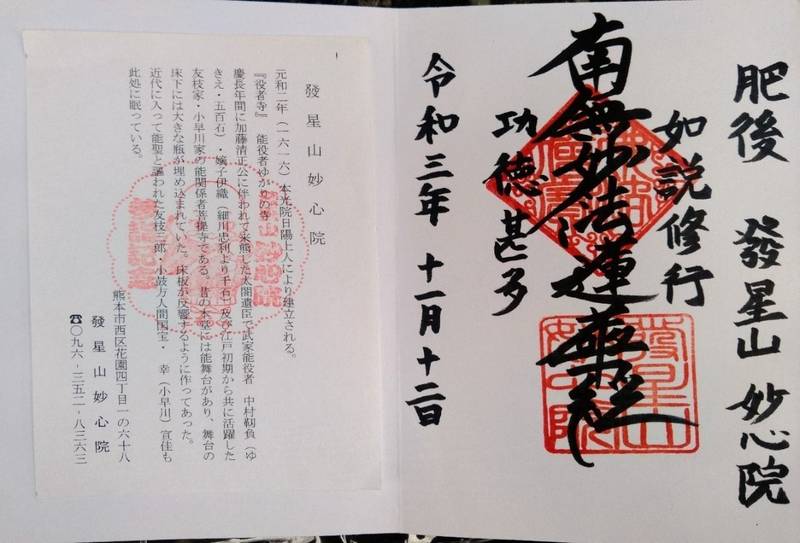 肥後 發星山 妙心院
如説修行
南無妙法蓮華経
功徳甚多
令和三年 十一月十二日
發星山妙心院
元和二年（一六一六）本光院日陽上人により建立される。
『役者寺』 能役者ゆかりの寺
慶長年間に加藤清正公に伴われて来熊した太閤遺臣で武家能役者 中村靱負（ゆ
きえ・五百石）・嫡子伊織（細川忠利より千石）及び江戸初期から共に活躍した
友枝家・小早川家の能関係者菩提寺である。昔の本堂には能舞台があり、舞台の
床下には大きな瓶が埋め込まれていた。床板が反響するように作ってあった。
近代に入って能聖と謳われた友枝三郎・小鼓方人間国宝・ 幸（小早川）宣佳も
此処に眠っている。
熊本市西区花園四丁目一の六十八
發星山妙心院
☎〇九六-三五二-八三六三
發星山
妙心院